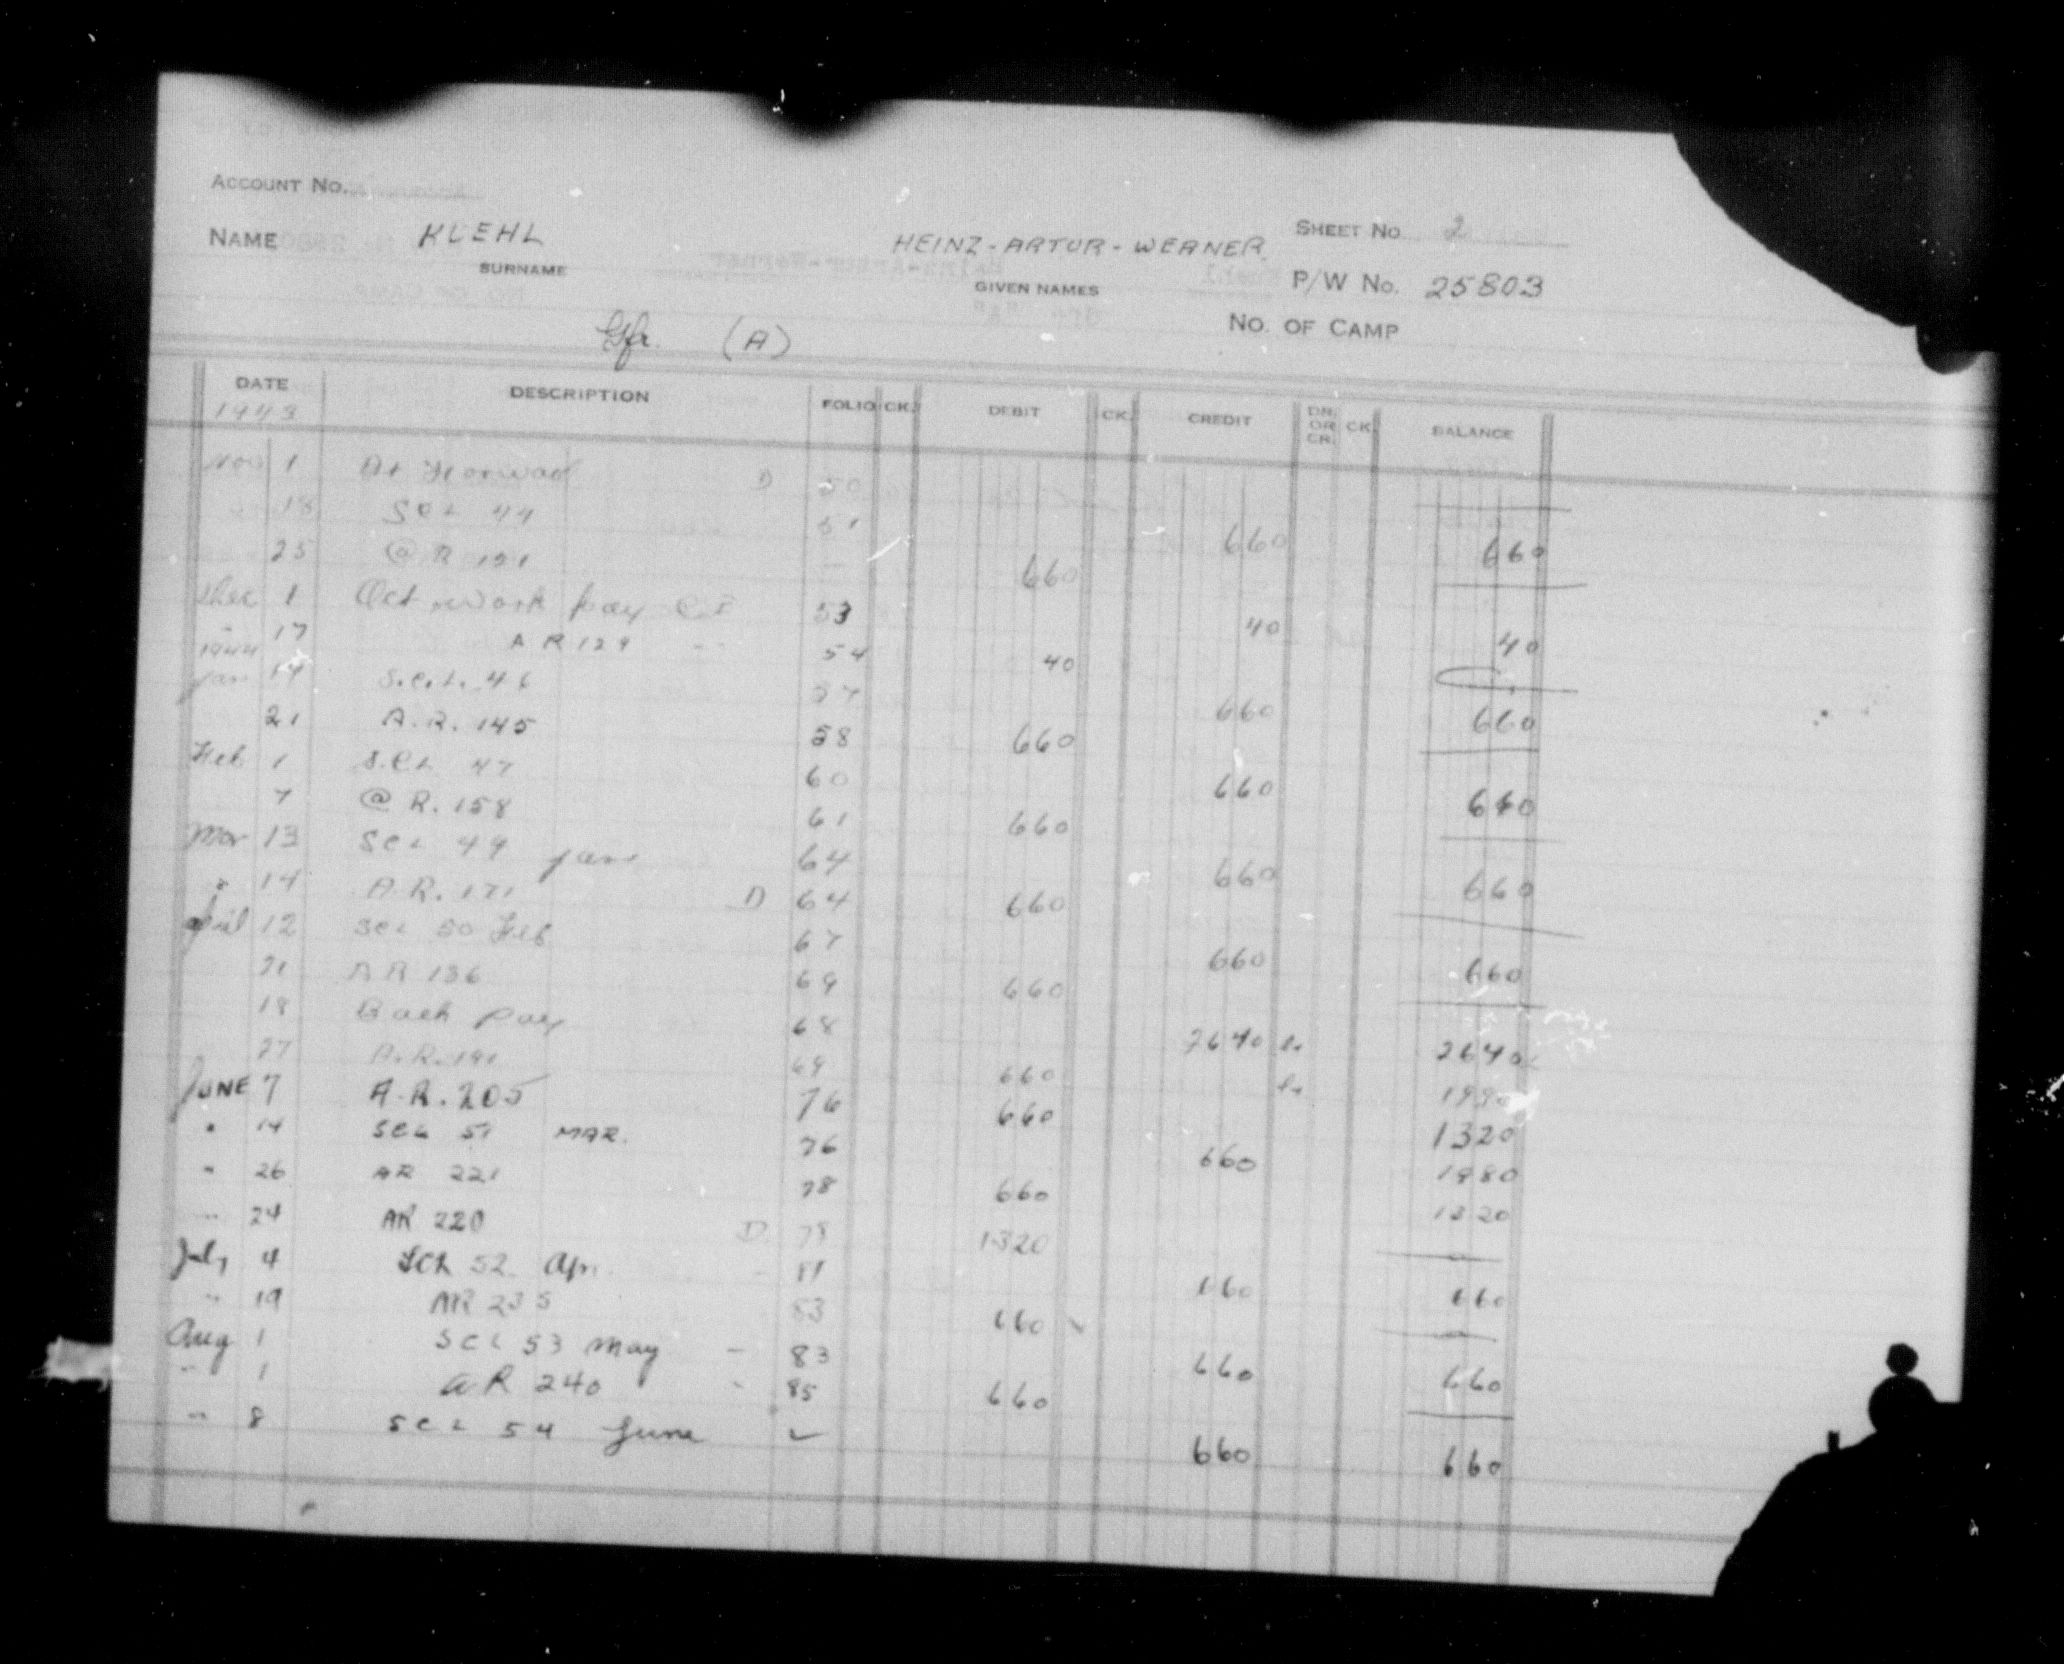 ACCOUNT No.
NAME KLEHL HEINZ-ARTUR-WERNER SHEET No 2
SURNAME GIVEN NAMES P/W No. 25803
Gfr. (A) No. OF CAMP
DATE DESCRIPTION FOLIO CK. DEBIT CK. CREDIT DR. OR CR. CK. BALANCE
1943
Nov 1 Forward D 50
18 SCL 44 51 660 660
25 @ R 121 660
Dec 1 Oct work pay 53 40 40
17 A R 129 54 40
1944
Jan 14 S.C.L. 46 57 660 660
21 A.R. 145 58 660
Feb 1 S.C.L 47 60 660 660
7 @ R. 158 61 660
Mar 13 SCL 49 Jan 64 660 660
" 14 A.R. 171 D 64 660
April 12 SCL 50 Feb 67 660 660
21 AR 186 69 660
18 Back pay 68 2640 2640
27 A.R. 191 69 660 1980
JUNE 7 A.R. 205 76 660 1320
" 14 SCL 51 MAR. 76 660 1980
" 26 AR 221 78 660 1320
" 24 AR 220 D 79 1320
July 4 SCL 52 Apr. 81 660 660
" 19 AR 235 83 660
Aug 1 SCL 53 May - 83 660 660
" 1 AR 240 " 85 660
" 8 SCL 54 June ✓ 660 660